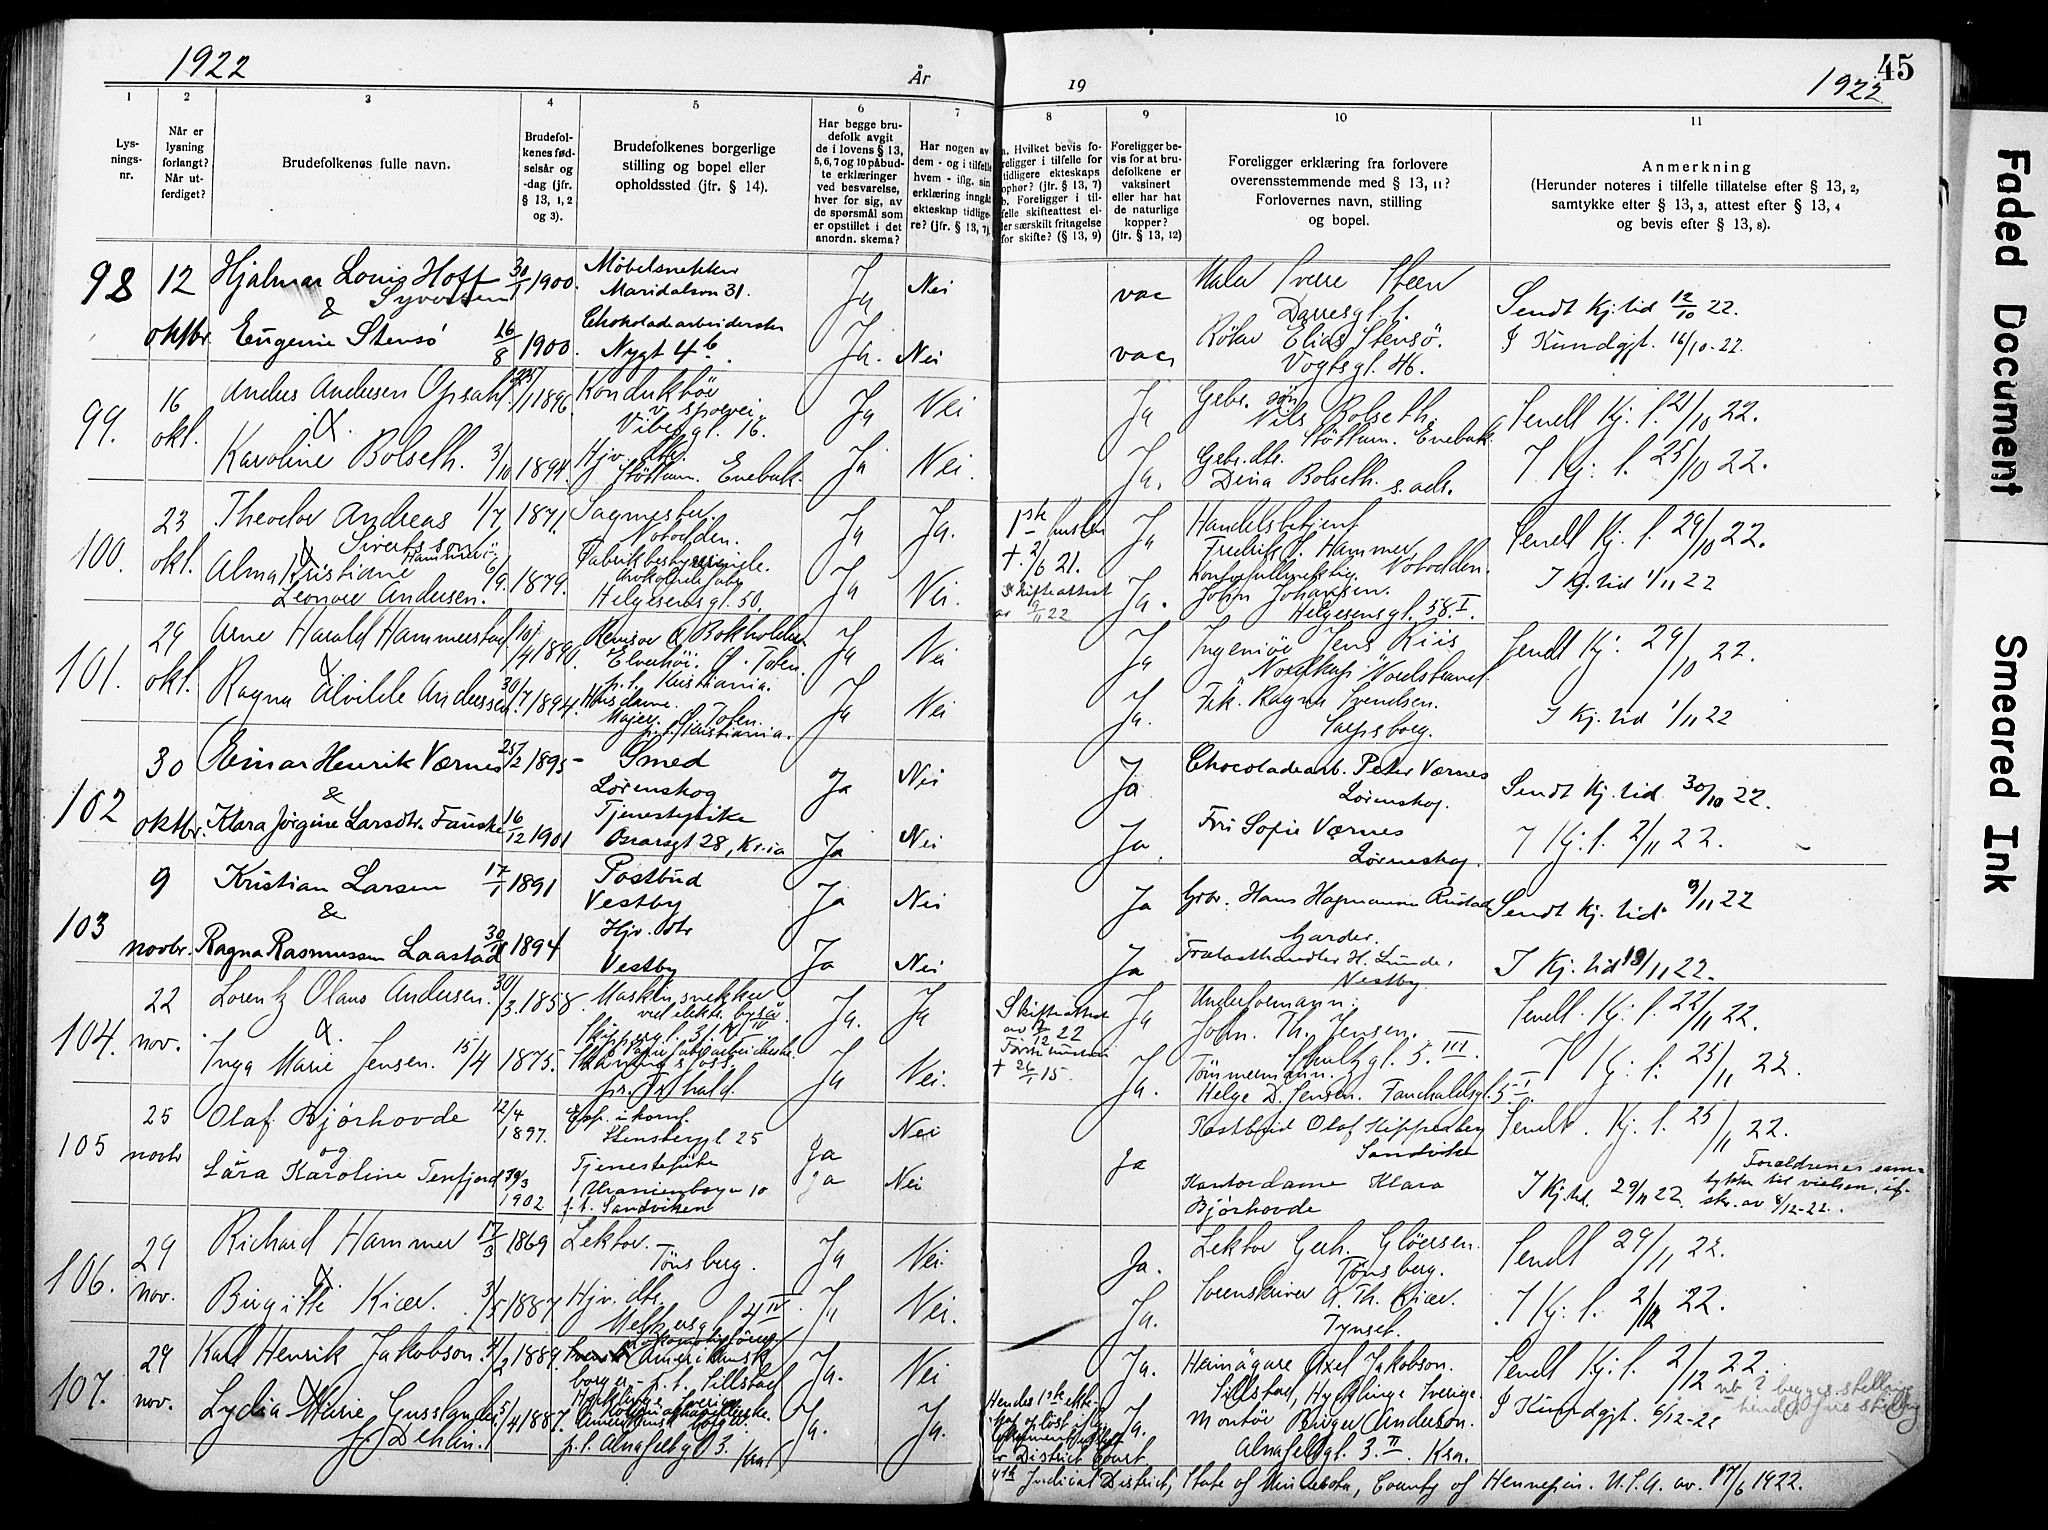 1922
År
19
1922
45
1 2 3 4 5 6 7 8 9 10 11
Lys-
nings-
nr.
Når er
lysning
forlangt?
Når ut-
ferdiget?
Brudefolkenes fulle navn.
Brudefol-
kenes fød-
selsår og
-dag (jfr.
§ 13, 1, 2
og 3).
Brudefolkenes borgerlige
stilling og bopel eller
opholdssted (jfr. § 14).
Har begge bru-
defolk avgit
de i lovens § 13,
5, 6, 7 og 10 påbud-
te erklæringer
ved besvarelse,
hver for sig, av
de spørsmål som
er opstillet i det
anordn. skema?
Har nogen av
dem - og i tilfelle
hvem - iflg. sin
erklæring inngåt
ekteskap tidlige-
re? (jfr. § 13, 7).
a. Hvilket bevis fo-
religger i tilfelle for
tidligere ekteskaps
ophør? (jfr. § 13, 7)
b. Foreligger i til-
felle skifteattest el-
ler særskilt fritagelse
for skifte? (§ 13, 9)
Foreligger be-
vis for at bru-
defolkene er
vaksinert
eller har hat
de naturlige
kopper?
(jfr. § 13, 12)
Foreligger erklæring fra forlovere
overensstemmende med § 13, 11?
Forlovernes navn, stilling
og bopel.
Anmerkning
(Herunder noteres i tilfelle tillatelse efter § 13, 2,
samtykke efter § 13, 3, attest efter § 13, 4
og bevis efter § 13, 8).
98
12
oktbr.
Hjalmar Louis Hoff
Syvertsen
&
Eugenie Stensö
30/1 1900.
16/8 1900.
Möbelsnekker
Maridalsvn 31.
Chokoladearbeiderske
Nygt 4b.
Ja Nei
Ja. Nei
vac
vac
Maler Sverre Steen
Darresgt. 1.
Elias Stensö.
Vogtsgt. 46.
Sendt Kj. tid 12/10 22.
I Kundgjt. 16/10-22.
99.
16
okt.
Anders Andersen Opsahl
&
Karoline Bolseth.
1896.
3/10 1894.
Konduktör
v. sporvei.
Vibesgt. 16.
Hjv. dtr.
Enebak.
Ja Nei
Ja Nei.
Ja
Ja.
Gbr. sön
Nils Bolseth.
Enebak.
Gbr. dtr.
Dina Bolseth. s. ads.
Sendt Kj. t. 21/10 22.
I Kj. t. 25/10 22.
100.
23
okt.
Theodor Andreas
Sivertsson
&
Alma Kristiane
Leonore Andersen.
1/7 1871.
6/9. 1879.
Sagmester.
Notodden.
Helgesensgt. 50.
Ja Ja.
Ja Nei.
1ste hustru
† 2/6 21.
Skifteattest
av 9/11 22
Ja
Ja.
Handelsbetjent
Fredrik S. Hammer
Notodden.
Kontorfullmektig
John Johansen.
Helgesensgt. 58 I.
Sendt Kj. t. 29/10 22.
I Kj. tid 1/11 22
101.
29
okt.
Arne Harald Hammerstad
&
Ragna Alvilde Andersen
10/4 1890.
30/7 1894.
Revisor & Bokholder
Elverhöi. Ö. Toten.
p.t. Kristiania.
Husdame.
Majer. Ö. Toten.
p.t. Kristiania.
Ja Nei
Ja Nei
Ja
Ja.
Ingeniör Jens Riis
"Nordkap" Nordstrand.
Frk. Ragna Svendsen.
Sarpsborg.
Sendt Kj. 29/10 22.
I Kj. tid 1/11 22
102
30
oktbr.
Einar Henrik Værnes
&
Klara Jörgine Larsdtr. Fauske
25/2 1895
16/12 1901
Smed
Lørenskog
Tjenestepike
Oscarsgt 28, Kr.ia
Ja Nei
Ja Nei
Ja
Ja
Chocoladearb. Peter Værnes
Lørenskog.
Fru Sofie Værnes
Lørenskog.
Sendt Kj. tid. 30/10 22.
I Kj. t. 2/11 22.
103
9
novbr.
Kristian Larsen
&
Ragna Rasmussen Laastad
17/1 1891
1894
Postbud
Vestby
Hjv. dtr
Vestby
Ja Nei
Ja Nei
Ja
Ja
Gbr. Hans Hagmann Rustad
Garder.
Trælasthandler H. Lunde,
Vestby
Sendt Kj. tid. 9/11 22
I Kj. tid 13/11 22.
104.
22
nov.
Lorentz Olaus Andersen.
&
Inga Marie Jensen.
30/3. 1858.
15/4 1875.
Maskinsnekker
Skippergt. 31 IV
pr. Fr.hald.
Ja. Ja
Ja Nei.
Skifteattest
av 12/12 22
† 26/1 15.
Ja
Ja.
Underformann.
John. Th. Jensen.
Schultzgt. 5. III
Tömmermann.
Helge D. Jensen. Fauchaldsgt. 5 I.
Sendt. Kj. t. 22/11 22.
I Kj. t. 25/11 22.
105
25
novbr
Olaf Bjórhovde
og
Lára Karoline Tenfjord
12/4
1897.
1902.
Exp. i komf.
Stensbergt 25
Tjenestepike
Uranienborgv 10
p.t. Sandviken
Ja Nei
Ja Nei
Ja
Postbud Olaf Kippenberg
Sandvika
Kontordame Klara
Bjórhovde
Sendt. Kj. t. 25/11 22.
I Kj. td. 29/11 22.
Forældrenes sam-
tykke til vielsen, if.
skr. av 8/12-22.
106.
29
nov.
Richard Hammer
&
Birgitte Kiær.
17/3 1869
3/5 1887
Lektor.
Tönsberg.
Hjv. dtr.
Meltzersgt. 4 IV
Ja Nei
Ja Nei.
Ja.
Ja.
Lektor Gerh. Glöersen.
Tønsberg.
Sorenskriver A. Th. Kiær.
Tynset.
Sendt 29/11 22.
I Kj. t. 2/12 22.
107.
29
nov.
Karl Henrik Jakobson.
&
Lydia Marie Gusslander
f. Dehlin.
1889.
5/4 1887.
Amerikansk
borger - p.t. Sillstad
p.t. Alnafetgt 3. Kra
Ja. Nei
Ja. Ja.
Hendes 1ste ekte-
skap oplöst ifölge
av District Court
4th Judicial District, State of Minnesota, County of Hennepin. U.S.A. av. 17/6 1922.
Ja.
Ja.
Hemägare Axel Jakobson.
Sillstad, Hycklinge Sverige.
Montör Birger Anderson.
Alnafetgt. 3. II. Kra.
Sendt Kj. t. 2/12 22.
I Kundgjt. 6/12-22
nb? begges stilling
Faded Document
Smeared Ink